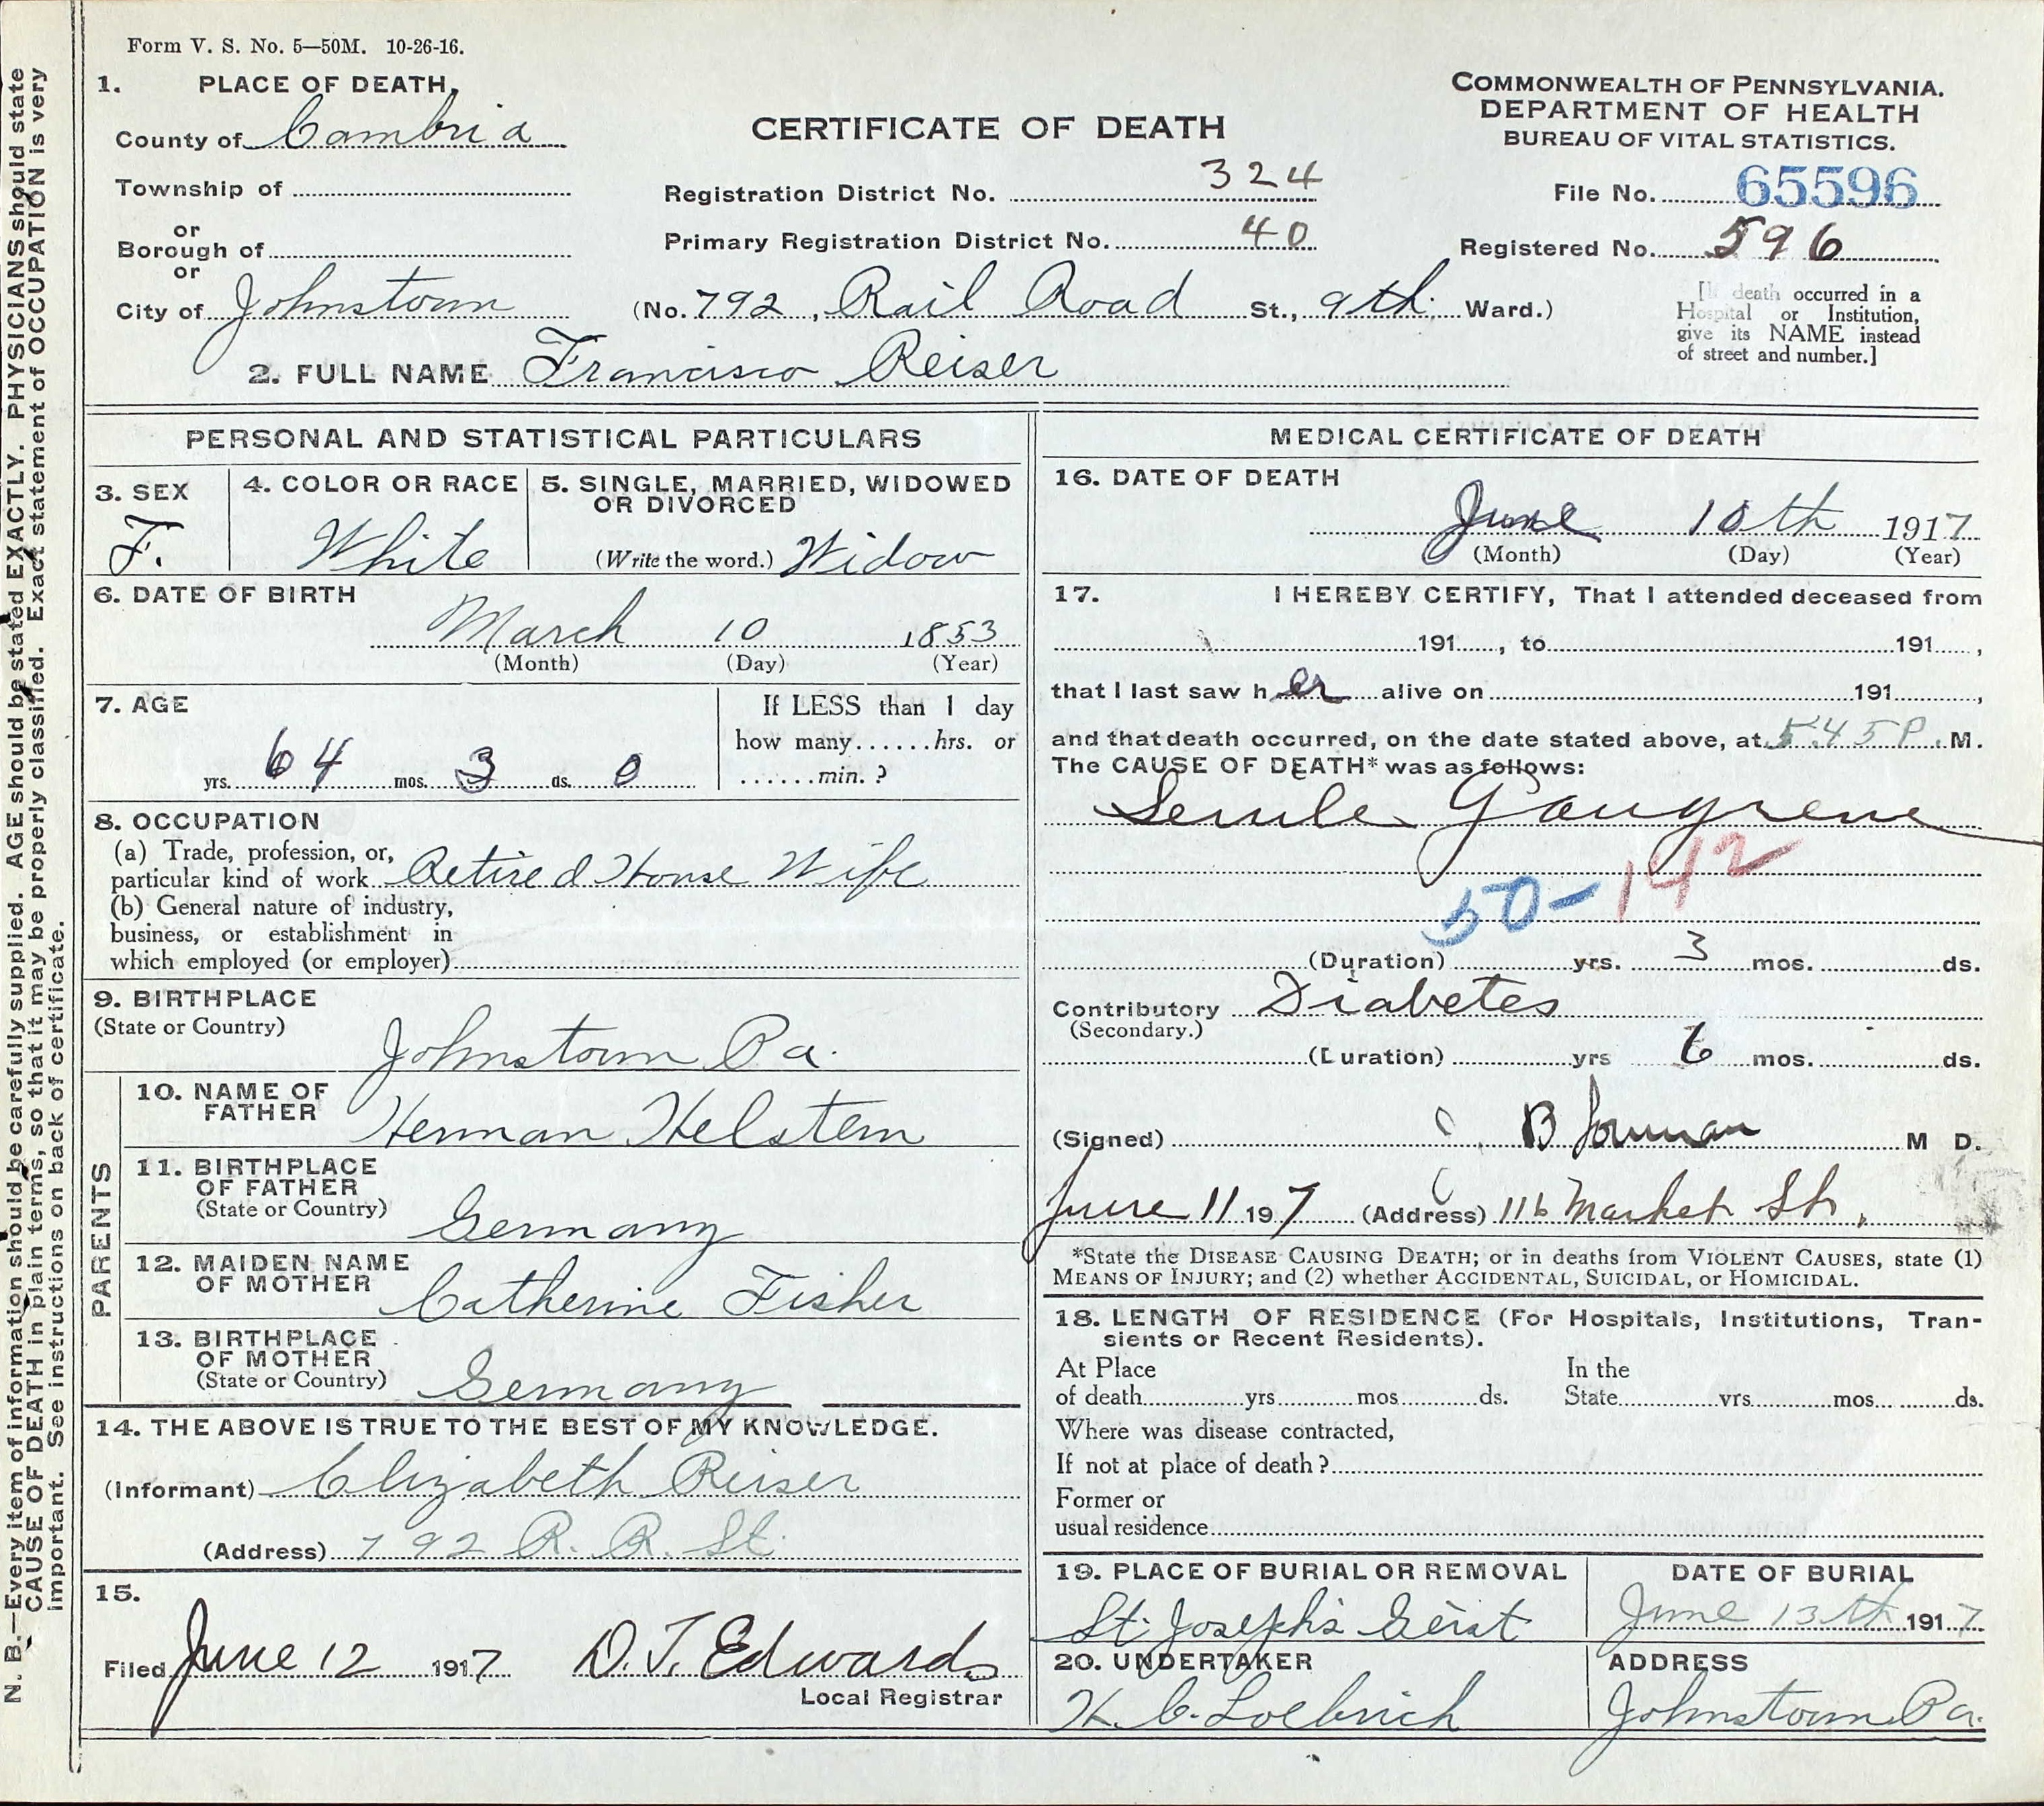 Form V. S. No. 5—50M. 10-26-16.
1. PLACE OF DEATH,
County of Cambria
Township of
or
Borough of
or
City of Johnstown
CERTIFICATE OF DEATH
Registration District No. 324
Primary Registration District No. 40
COMMONWEALTH OF PENNSYLVANIA.
DEPARTMENT OF HEALTH
BUREAU OF VITAL STATISTICS.
File No. 65596
Registered No. 596
(No. 792, Rail Road St., 9th. Ward.)
[If death occurred in a
Hospital or Institution,
give its NAME instead
of street and number.]
2. FULL NAME Francisco Reiser
PERSONAL AND STATISTICAL PARTICULARS
3. SEX
F.
4. COLOR OR RACE
White
5. SINGLE, MARRIED, WIDOWED
OR DIVORCED
(Write the word.) Widow
6. DATE OF BIRTH
March 10 1853
(Month) (Day) (Year)
7. AGE
yrs. 64 mos. 3 ds. 0
If LESS than 1 day
how many......hrs. or
......min. ?
8. OCCUPATION
(a) Trade, profession, or,
particular kind of work Retired House Wife
(b) General nature of industry,
business, or establishment in
which employed (or employer)
9. BIRTHPLACE
(State or Country)
Johnstown Pa.
PARENTS
10. NAME OF
FATHER
Herman Helstern
11. BIRTHPLACE
OF FATHER
(State or Country)
Germany
12. MAIDEN NAME
OF MOTHER
Catherine Fisher
13. BIRTHPLACE
OF MOTHER
(State or Country)
Germany
14. THE ABOVE IS TRUE TO THE BEST OF MY KNOWLEDGE.
(Informant) Elizabeth Reiser
(Address) 792 R. R. St.
15.
Filed June 12 1917 D. J. Edwards
Local Registrar
MEDICAL CERTIFICATE OF DEATH
16. DATE OF DEATH
June 10th 1917
(Month) (Day) (Year)
17. I HEREBY CERTIFY, That I attended deceased from
191 , to 191 ,
that I last saw her alive on 191 ,
and that death occurred, on the date stated above, at 5.45 P. M.
The CAUSE OF DEATH* was as follows:
Senile Gangrene
50-142
(Duration) yrs. 3 mos. ds.
Contributory Diabetes
(Secondary.)
(Duration) yrs 6 mos. ds.
(Signed) M D.
June 11 197 (Address) 116 Market St.
*State the DISEASE CAUSING DEATH; or in deaths from VIOLENT CAUSES, state (1)
MEANS OF INJURY; and (2) whether ACCIDENTAL, SUICIDAL, or HOMICIDAL.
18. LENGTH OF RESIDENCE (For Hospitals, Institutions, Tran-
sients or Recent Residents).
At Place In the
of death yrs mos ds. State yrs mos ds.
Where was disease contracted,
If not at place of death ?
Former or
usual residence
19. PLACE OF BURIAL OR REMOVAL
St. Joseph's Geist
DATE OF BURIAL
June 13th 1917
20. UNDERTAKER
ADDRESS
Johnstown Pa.
N. B.—Every item of information should be carefully supplied. AGE should be stated EXACTLY. PHYSICIANS should state
CAUSE OF DEATH in plain terms, so that it may be properly classified. Exact statement of OCCUPATION is very
important. See instructions on back of certificate.